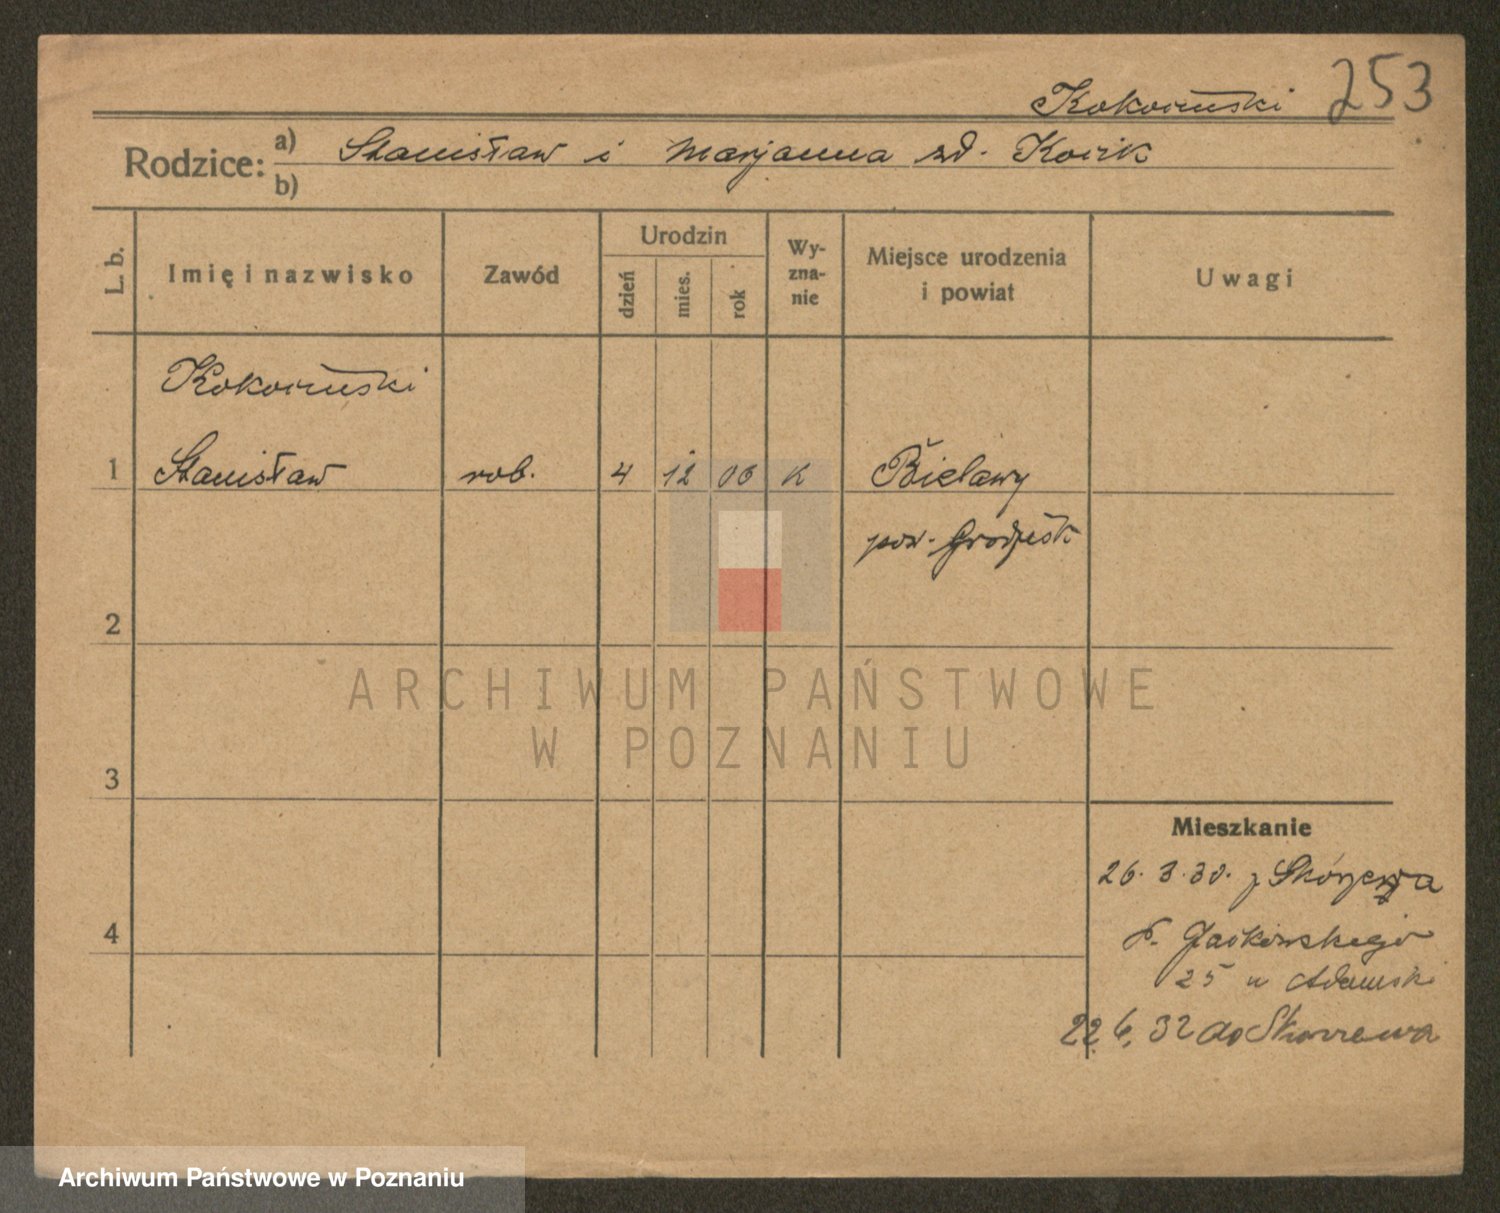 Kokociński 253
Rodzice: a) Stanisław i Marjanna zd. Kozik
b)
L. b. Imię i nazwisko Zawód Urodzin dzień mies. rok Wyznanie Miejsce urodzenia i powiat Uwagi
Kokociński
1 Stanisław rob. 4 12 06 K Bielawy
pow. Grodzisk
2
ARCHIWUM PAŃSTWOWE
W POZNANIU
3
4
Mieszkanie
26. 3. 30. z Skórzewa
Jackowskiego
25 u Adamski
22 6, 32 do Skorzewa
Archiwum Państwowe w Poznaniu